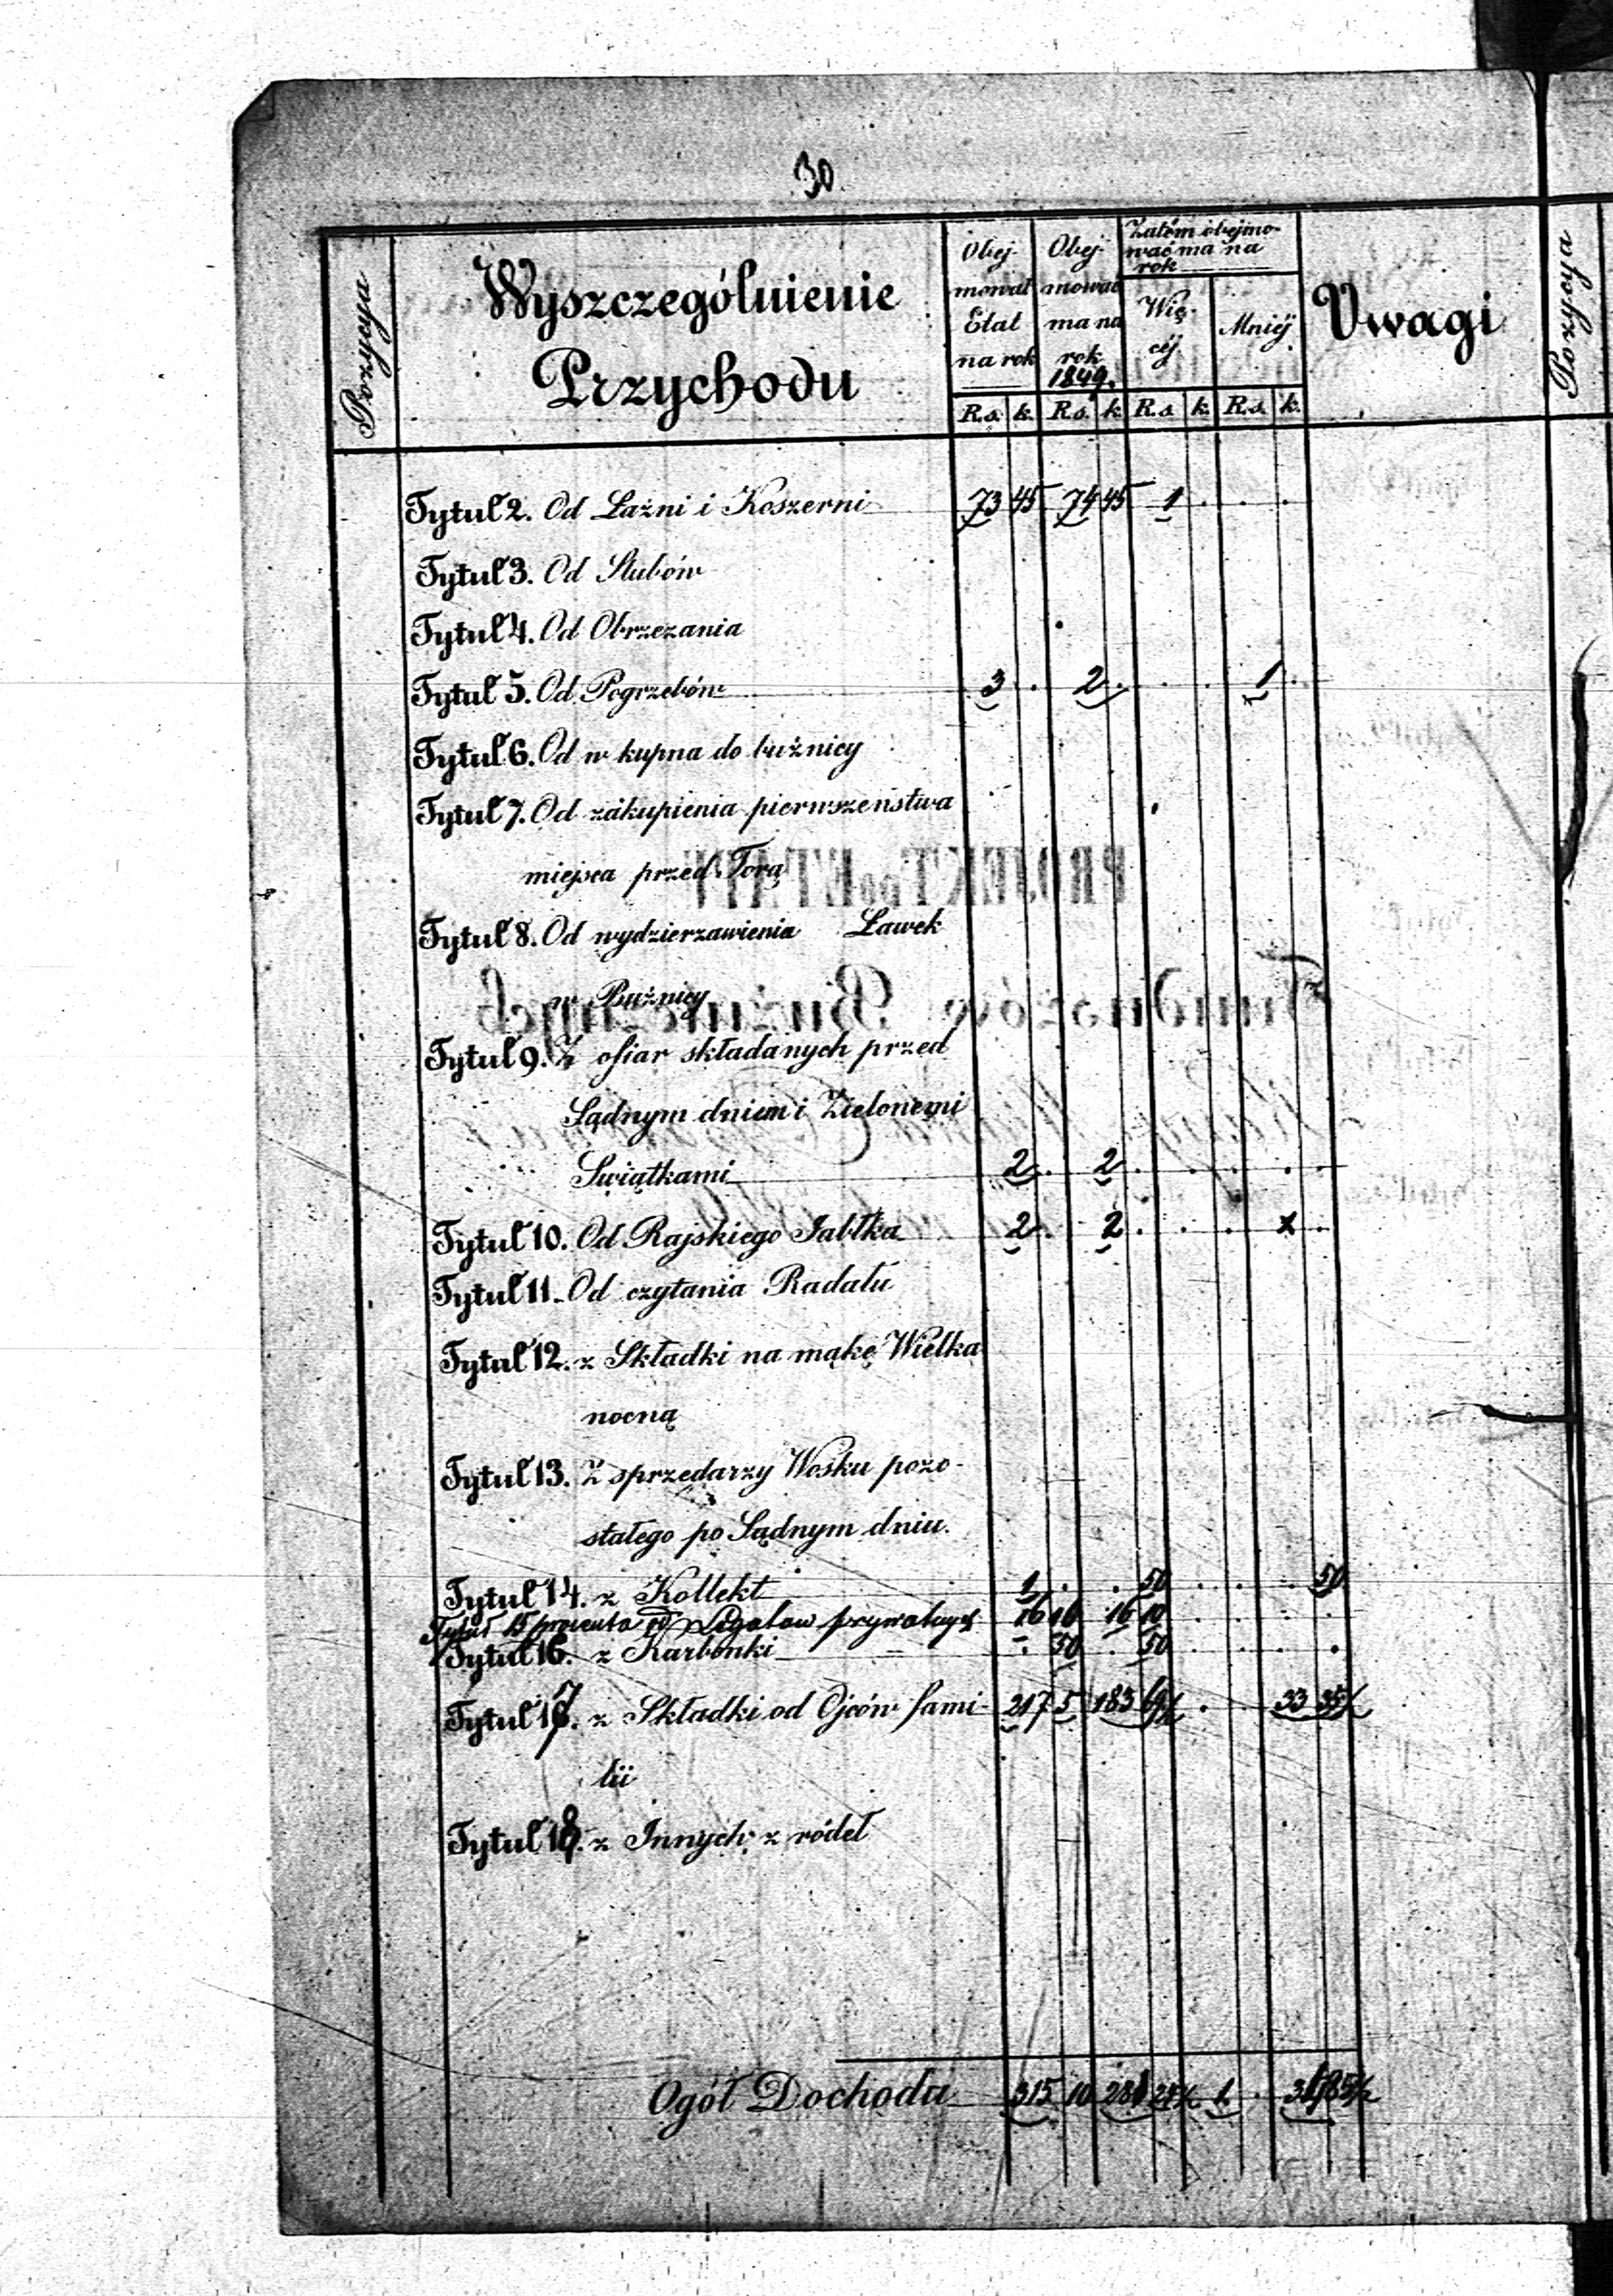 30
Pozycya
Wyszczególnienie
Przychodu
Obej-
mował
Etat
na rok
Obej-
mować
ma na
rok
1849.
Zatém obejmo-
wać ma na
rok
Wię-
céj
Mniéj
Uwagi
Pozycya
R.s. k. R.s. k. R.s. k. R.s. k.
Tytuł 2. Od Łaźni i Koszerni 73 45 74 45 1 . . .
Tytuł 3. Od Slubów
Tytuł 4. Od Obrzezania
Tytuł 5. Od Pogrzebów 3 . 2 . . . 1 .
Tytuł 6. Od w kupna do bużnicy
Tytuł 7. Od zakupienia pierwszeństwa
miejsca przed Torą
Tytuł 8. Od wydzierzawienia Ławek
w Bużnicy
Tytuł 9. Z ofiar składanych przed
Sądnym dniem i Zielonemi
Swiątkami 2 . 2 . . . . .
Tytuł 10. Od Rajskiego Jabłka 2 . 2 . . . x .
Tytuł 11. Od czytania Radału
Tytuł 12. z Składki na mąkę Wielka
nocną
Tytuł 13. Z sprzedarzy Wosku pozo-
stałego po Sądnym dniu.
Tytuł 14. z Kollekt 1 . . 50 . . . 50
Tytuł 15 procenta od Legatow prywatnych 16 10 16 10 . . . .
Tytuł 16. z Karbonki . 50 . 50 . . . .
Tytuł 17. z Składki od Ojców fami- 217 5 183 69½ . . 33 35½
lii
Tytuł 18. z Innych z ródeł
Ogół Dochodu 315 10 281 24½ 1 . 34 85½
PROJEKT DO ETATU
Funduszów Bużniczych